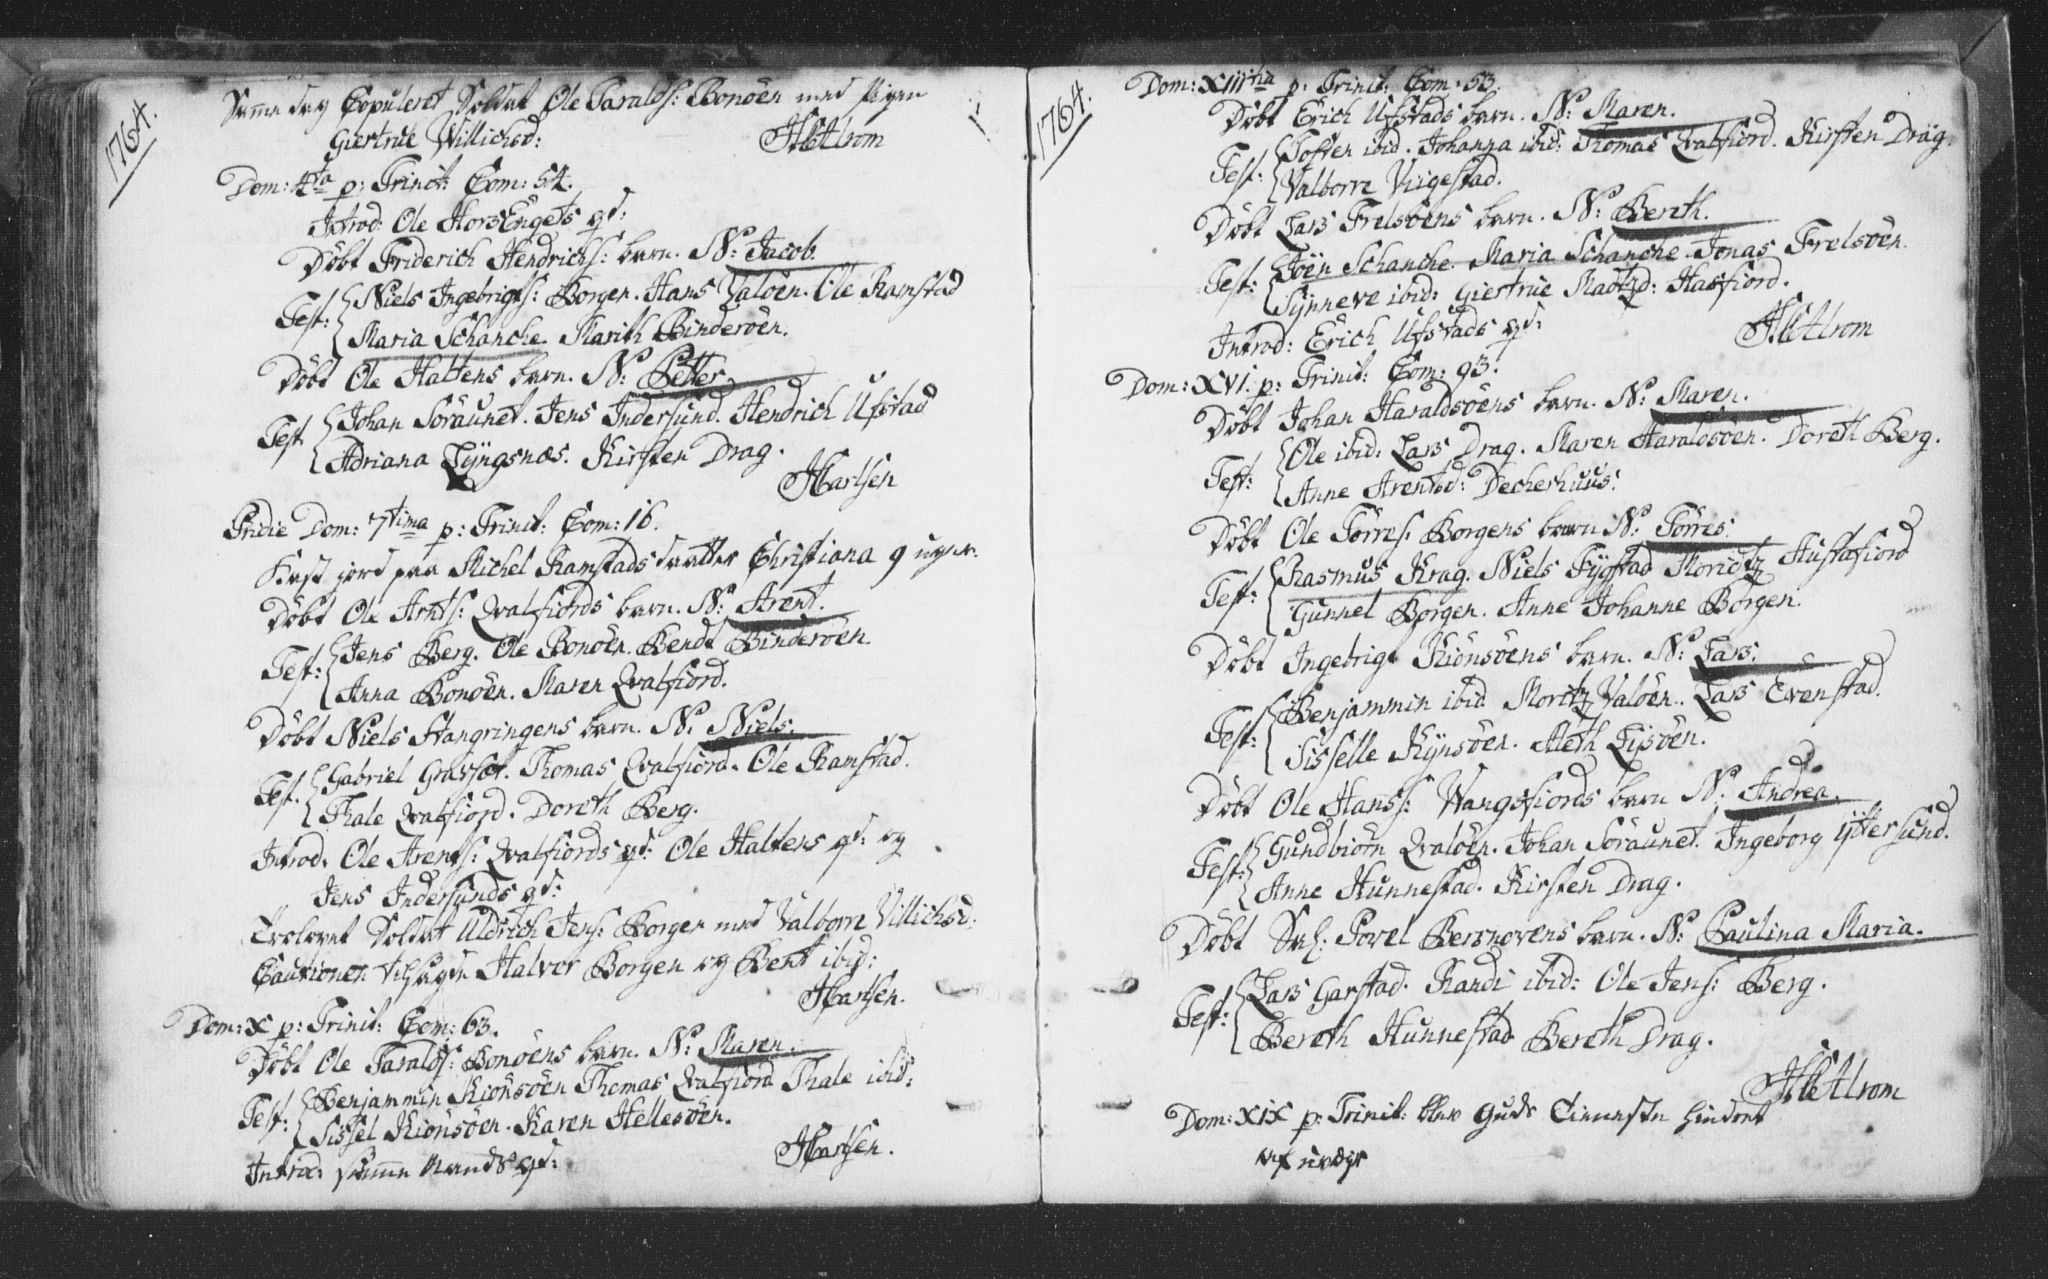 1764.
Samme dag Copuleret Soldat Ole Taralds: Bonöen med pigen
Giertrue Willichsd:
Dom: 4ta p: Trinit: Com: 54.
Introd: Ole HorsEngets qd:
Döbt Friderich Hendrichs: barn. N: Jacob.
Test: Niels Ingebrigts: Borgen. Hans Valöen. Ole Ramstad
Maria Schanche. Marith Binderöen.
Döbt Ole Haltens barn. N: Petter.
Test Johan Söraunet. Jens Indersund. Hendrich Ufstad
Adriana Lÿngsnæs. Kirsten Drag.
HCarlsen
Pridie Dom: 7tima p: Trinit: Com: 16.
Kast jord paa Michel Ramstads daatter Christiana 9 uger.
Döbt Ole Arnts: Qvalfiords barn. N: Arent.
Test: Jens Berg. Ole Bonöen. Bendt Binderöen.
Anna Bonöen. Maren Qvalfiord.
Döbt Niels Stangringens barn. N: Niels.
Test. Gabriel Gravset. Thomas Qvalfiord. Ole Ramstad.
Thale Qvalfiord. Doreth Berg.
Introd. Ole Arents: Qvalfiords qd: Ole Haltens qd: og
Jens Indersunds qd:
Trolovet Soldat Uldrich Jens: Borgen med Valborre Villichsd:
Cautioner: Halver Borgen og Bent ibid:
HCarlsen.
Dom: X p: Trinit: Com: 63.
Döbt Ole Taralds: Bonöens barn. N: Maren.
Test: Benjammin Kiönsöen Thomas Qvalfiord Thale ibid:
Sissel Kiönsöen. Karen Hellesöen.
Introd: samme Mands qd:
HCarlsen.
1764.
Dom: XIIItia p: Trinit: Com: 53.
Döbt Erich Ufstads barn. N: Maren.
Test: Tosten ibid. Johanna ibid: Thomas Qvalfiord. Kirsten Drag.
Valborre Viigestad.
Döbt Lars Frelsöens barn. N: Bereth.
Test: Jöen Schanche. Maria Schanche. Jonas Frelsöen.
Sÿnneve ibid: Giertrue Madtzd: Hasfiord.
Introd: Erich Ufstads qd:
HCAlrom
Dom: XVI. p: Trinit: Com: 93.
Döbt Johan Haraldsöens barn. N: Maren.
Test: Ole ibid: Lars Drag. Maren Haraldsöen. Doreth Berg.
Anne Arentsd: Decherhuus.
Döbt Ole Törres: Borgens barn N: Törres.
Test: Rasmus Krag. Niels Fÿgstad Moridtz Hustafiord
Gunnel Borgen. Anne Johanne Borgen.
Döbt Ingebrigt Kiönsöens barn. N: Lars.
Test: Benjammin ibid Moritz Valöen. Lars Evenstad.
Sisselle Kÿnsöen. Aleth Lÿsöen.
Döbt Ole Hanss: Wangsfiords barn N: Andrea.
Test: Gundbiörn Qvalöen. Johan Söraunet. Ingeborg ÿttersund.
Anne Hunnestad. Kirsten Drag.
Döbt Sal: Povel Bersnovens barn. N: Paulina Maria.
Test: Lars Garstad. Randi ibid: Ole Jens: Berg.
Bereth Hunnestad Bereth Drag.
HCAlrom
Dom: XIX p: Trinit: blev Guds Tienneste hindret
af uvæyr